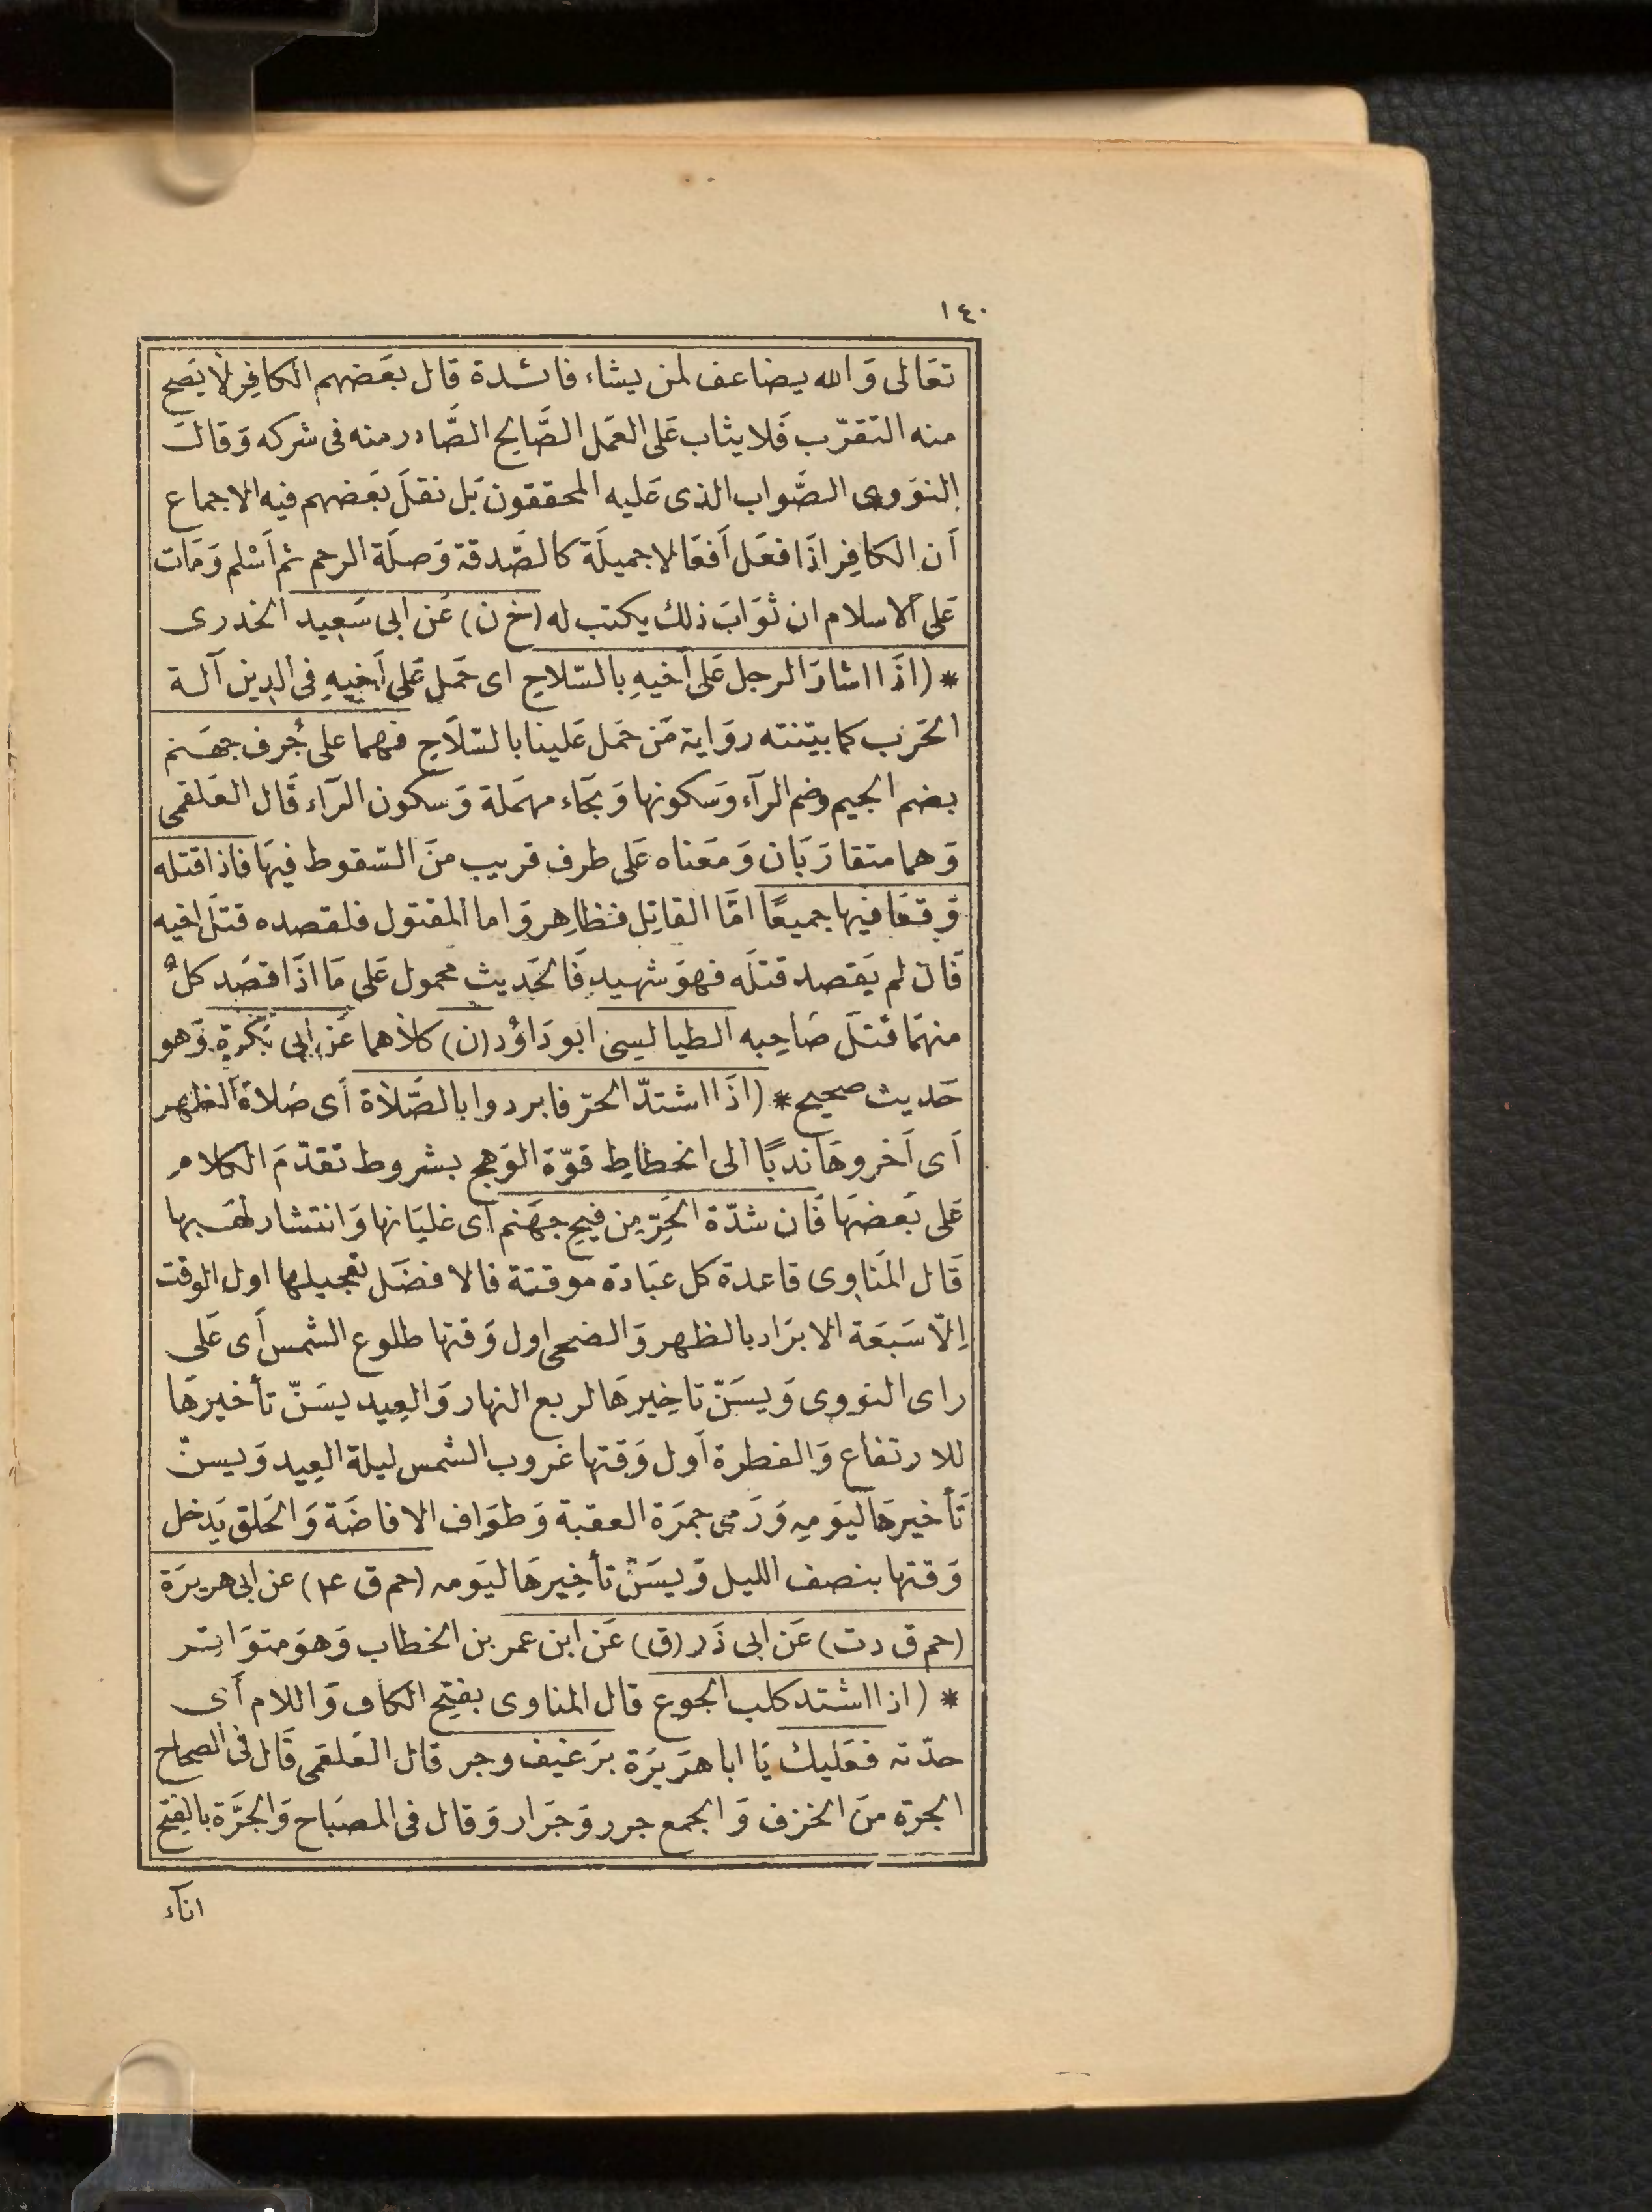 ١٤٠
تعَالى وَالله يضاعف لمن يشاء فائدة قال بعَضهم الكافِر لا يَصح
منه التقرّب فَلا يثاب عَلى العَمل الصَّالح الصَّادر منه فى شركه وَقال
النوَوى الصَّواب الذى عَليه المحققون بَل نقلَ بَعضهم فيه الاجماع
أن الكافِر اذَا فعَل أفعَالا جميلَة كالصَّدقة وَصلَة الرحم ثم أسْلم وَمَات
عَلى الاسلام ان ثوَابَ ذلك يكتب له (خ ن) عَن ابى سَعِيد الخدرى
* (اذَا اشارَ الرجل عَلى أخيهِ بالسّلاحِ اى حَمل عَلى أخِيهِ فى الدِين آلة
الحَرب كما بيّنته روَاية مَن حَمل عَلينا بالسّلاَحِ فهما على جُرف جهَنم
بضم الجيم وضم الرآء وَسكونها وَبحَاء مهمَلة وَسكون الرَآء قَال العَلقمى
وَهما متقارَبَان وَمعَناه عَلى طرف قريب منَ السّقوط فيهَا فاذا قتله
وَقعَا فيها جميعًا امَّا القاتِل فظاهِر وَاما المقتول فلقصده قتلَ اخيه
فَان لم يَقصد قتلَه فهوَ شهيد فَالحَديث محمول عَلى مَا اذَا قصَد كلٌ
منهمَا قتلَ صَاحِبه الطيالسِى ابو دَاوُد (ن) كلاهما عَن ابى بَكرَة وَهو
حَديث صحيح * (اذَا اشتدّ الحرّ فابردوا بالصَّلاة أى صَلاة الظهر
أى أخروهَا ندبًا الى انحطاطِ قوّة الوَهج بشروط تقدّمَ الكلام
عَلى بَعضهَا فَان شدّة الحَرّ مِن فيح جهَنم أى غليَانها وَانتشار لهَبها
قَال المَناوِى قاعدة كل عبَادة موَقتة فالافضَل تعجيلها اول الوقت
اِلاّ سَبعَة الابرَاد بالظهر وَالضحى اول وَقتها طلوع الشمس أى عَلى
راى النووى وَيسَنّ تاخِيرهَا لربع النهار وَالعِيد يسَنّ تأخيرهَا
للارتفاع وَالفطرة أول وَقتها غروب الشمس ليلة العِيد وَيسنّ
تَأخيرهَا ليَومِه وَرَمى جمرَة العقبة وَطوَاف الافاضَة وَالحَلق يَدخل
وَقتها بنصف الليل وَيسَنّ تأخِيرهَا ليَومه (حم ق ٤) عن ابى هريرَة
(حم ق دت) عَن ابى ذَر (ق) عَن ابن عمر بن الخطاب وَهوَ متوَاتر
* (اذا اشتد كلب الجوع قال المناوى بفتح الكاف وَاللام أى
حدّته فعَليك يَا ابا هرَيرَة برَغيف وجر قال العَلقمى قَال فى الصحاح
الجرّة منَ الخزف وَالجمع جرر وَجَرار وَقال فى المصبَاح وَالجَرَّة بالفتح
اناء